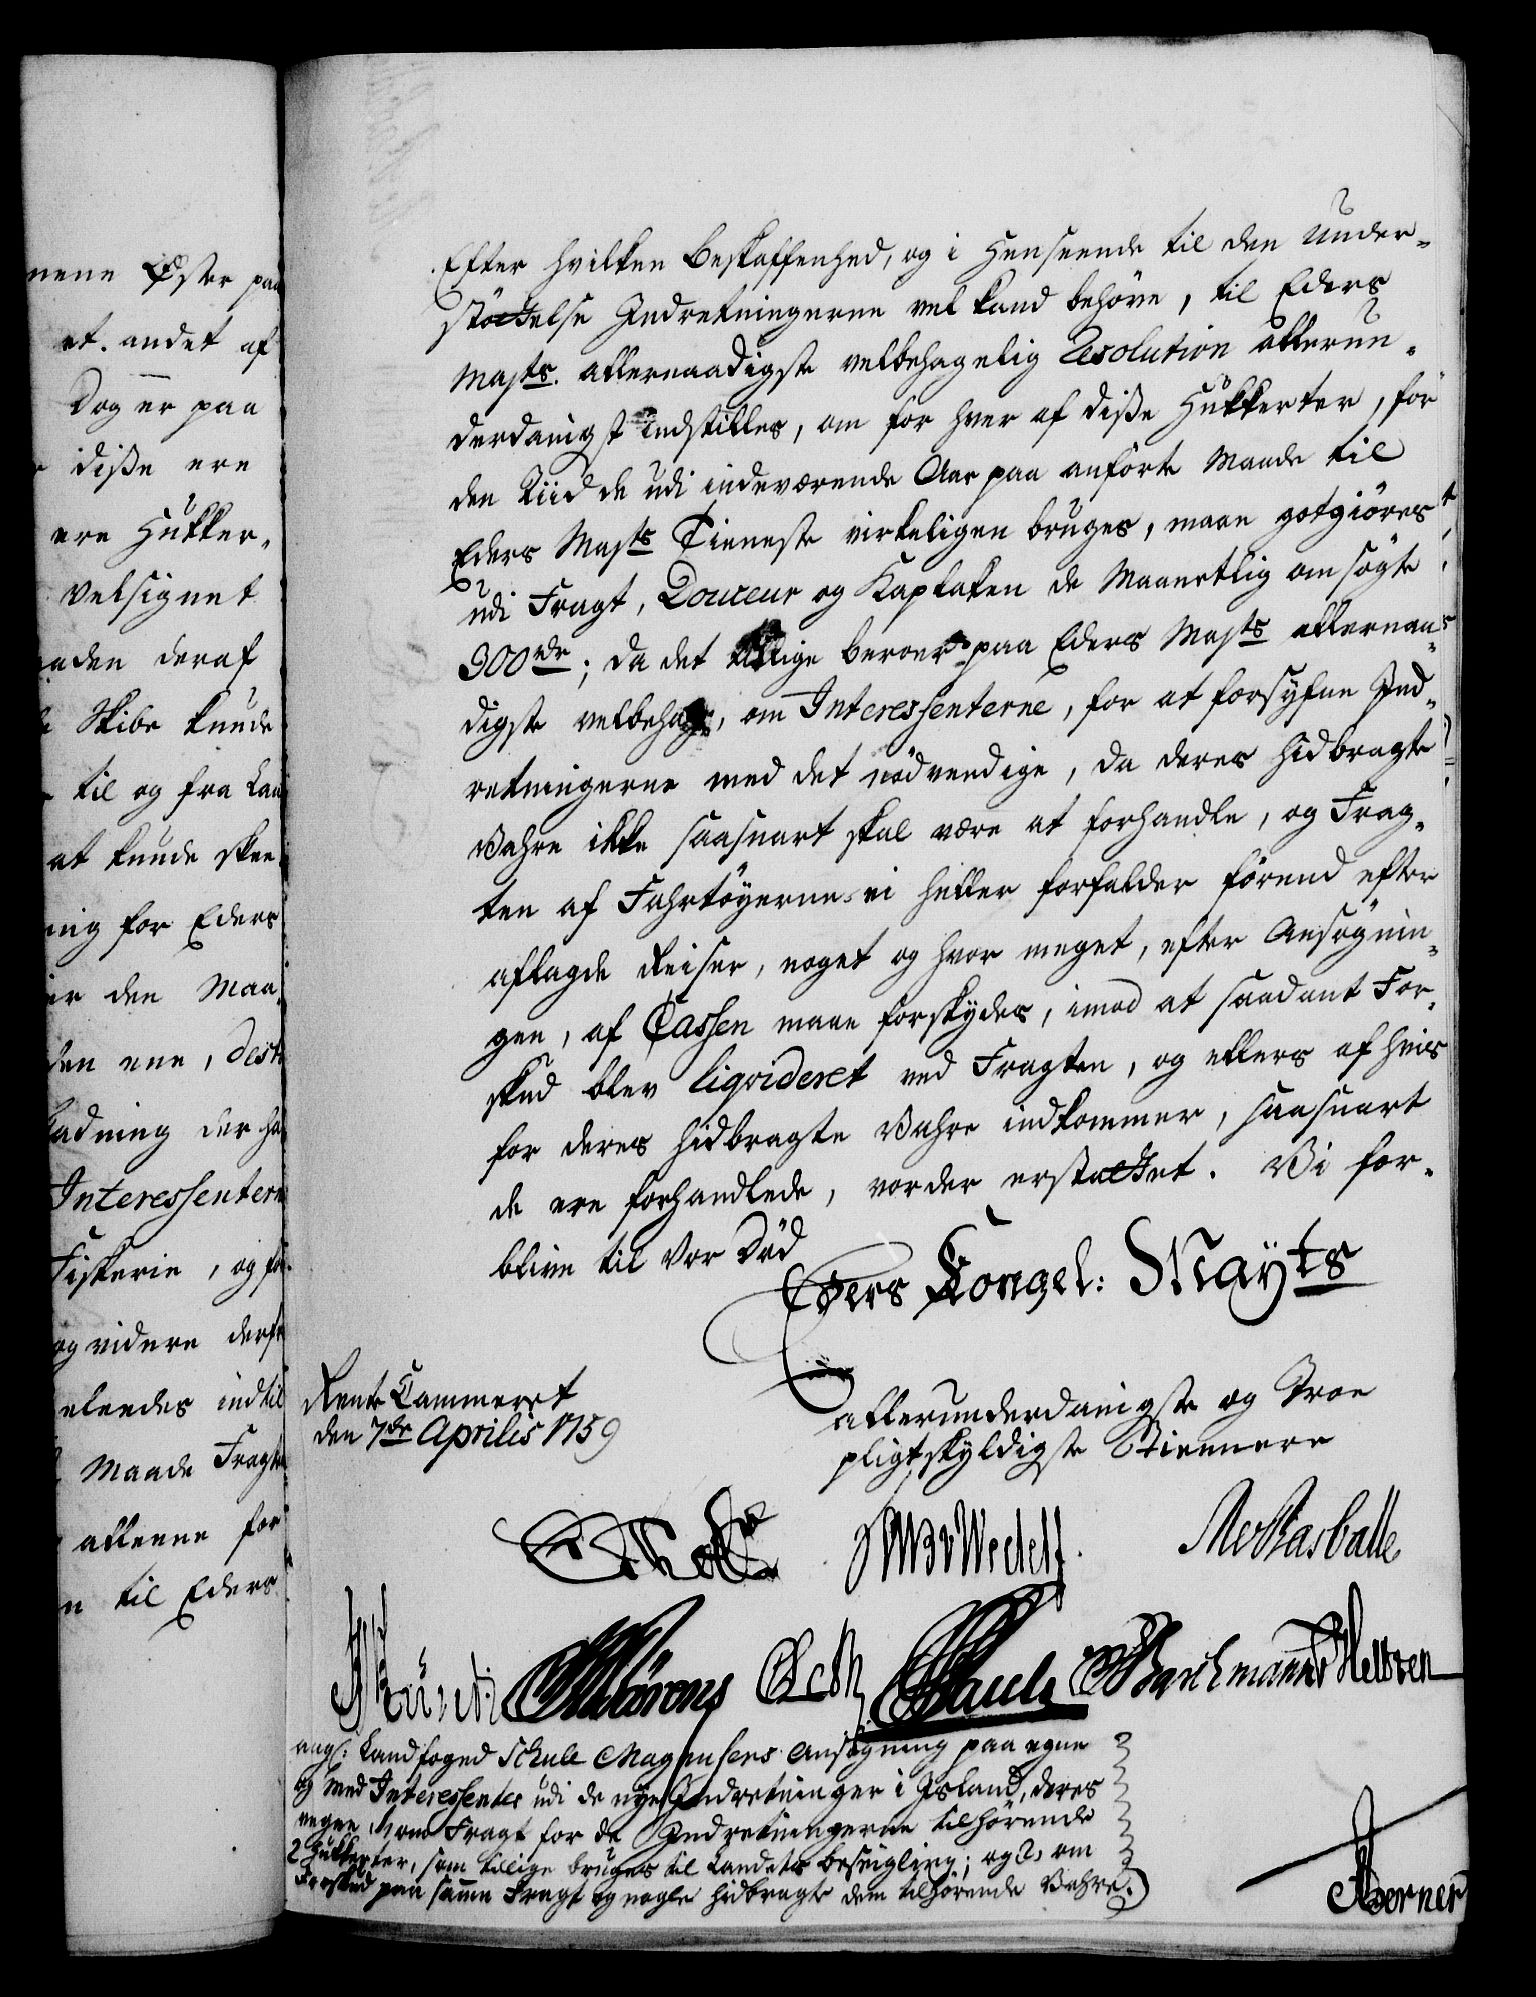 nene Øster paa
et. andet af
Dog er paa
disse ere
ere Hukker,
velsignet
aaden deraf
Skibe kunde
til og fra Lan
at kunde skee
ing for Eders
er den Maa,
den ene, dest
ladning der ha
Interessentern
Fiskerie, og fo
og videre derf
elendes indtil
Maade Fragt
alleene for
til Eders
Efter hvilken Beskaffenhed, og i Henseende til den Under-
støttelse Indretningerne vel kand behöve, til Eders
Majts. allernaadigste velbehagelig Resolution allerun-
derdanigst indstilles, om for hver af disse Hukkerter, for
den Tiid de udi indeværende Aar paa anförte Maade til
Eders Majts Tieneste virkeligen bruges, maae gotgiöres
udi Fragt, Douceur og Kaplaken de Maanetlig ansögte
300 rdr; da det tillige beroer paa Eders Majts allernaa-
digste velbehag, om Interessenterne, for at forsyne Ind-
retningerne med det nödvendige, da deres hidbragte
Vahre ikke saasnart skal være at forhandle, og Frag-
ten af Fahrtöyerne ei heller forfalder förend efter
aflagde Reiser, noget og hvor meget, efter Ansögnin-
gen, af Cassen maae forskydes, imod at saadant For-
skud blev liqvideret ved Fragten, og ellers af hvis
for deres hidbragte Vahre indkommer, saasnart
de ere forhandlede, vorder erstattet. Vi for-
blive til vor Död
Eders Kongel: Mayts
Rente Cammeret
den 7de Aprilis 1759
allerunderdanigste og Troe
pligtskyldigste Tienere
Wedell
Künd
angl: Landfoged Schule Magnusens Ansögning paa egne
og Med Interessentes udi de nye Indretninger i Island, deres
vegne, 1, om Fragt for de Indretningerne tilhörende
2 Hukkerter, som tillige bruges til Landets beseigling; og 2, om
Forskud paa samme Fragt og nogle hidbragte dem tilhörende Vahre.